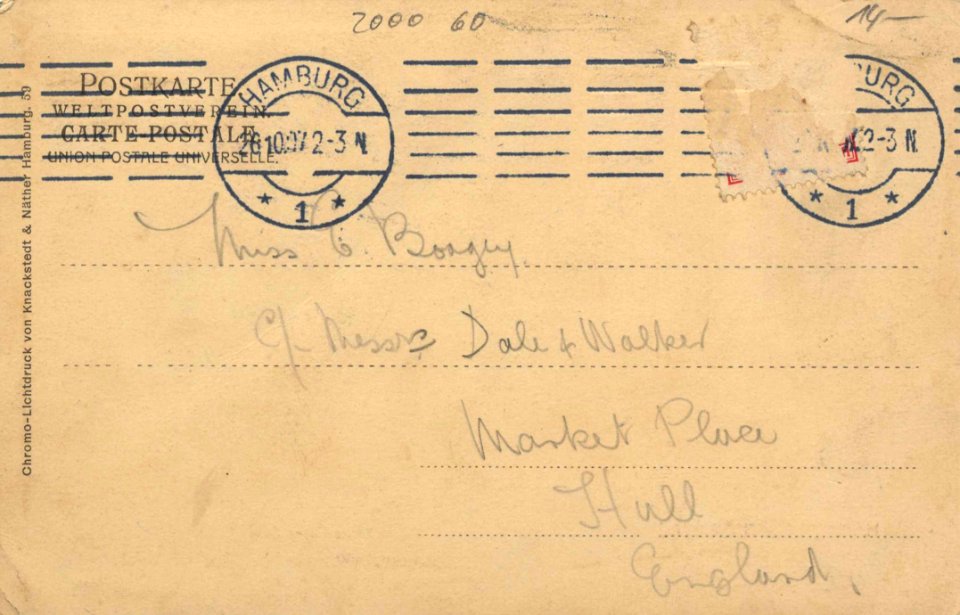 2000 60
14—
POSTKARTE
WELTPOSTVEREIN.
CARTE POSTALE
UNION POSTALE UNIVERSELLE.
HAMBURG
26.10.07 2-3 N
* 1 *
BURG
2-3 N
* 1 *
Chromo-Lichtdruck von Knackstedt & Näther Hamburg. 59
Miss
C/- Messrs Dale & Walker
Market Place
Hull
England.